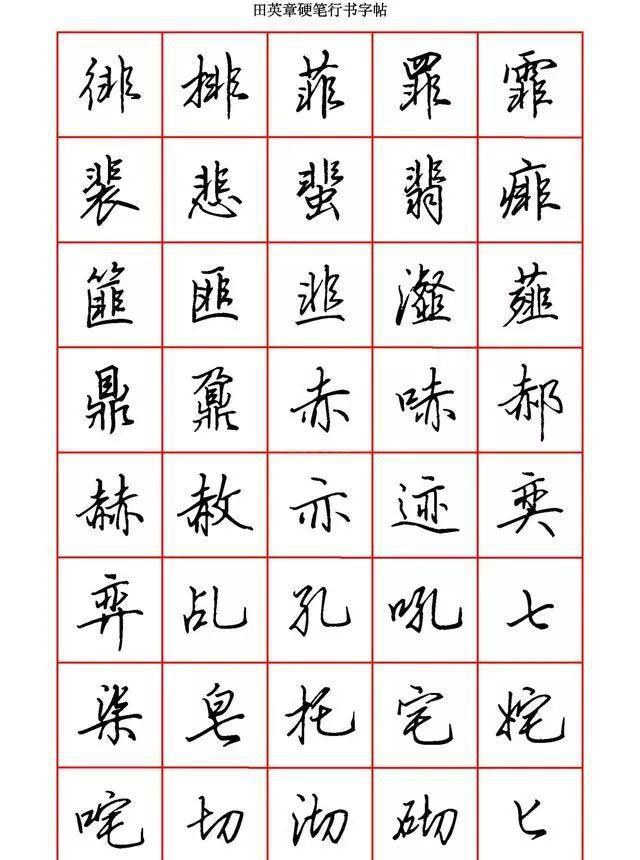 田英章硬笔行书字帖
徘排菲罪霏
裴悲蜚翡痱
篚匪韭瀣薤
鼎鼐赤哧郝
赫赦亦迹奕
弈乩孔吼七
柒皂托宅姹
咤切沏砌匕